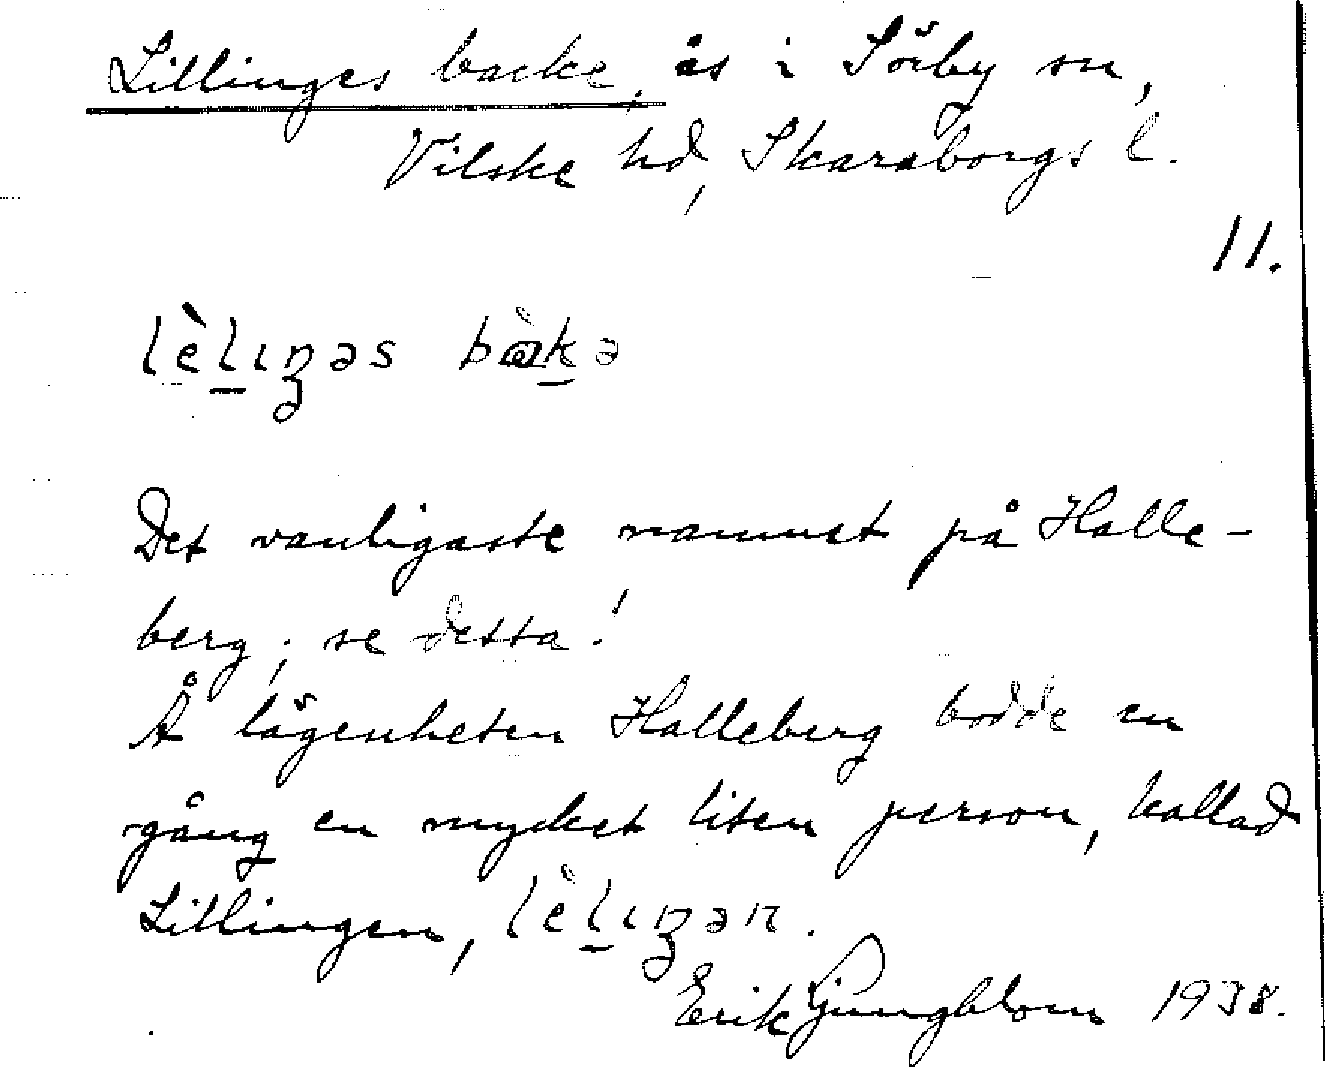 Lillinges backe, ås i Sörby sn,
Vilske hd, Skaraborgs l.
11.
lèl̲ıŋəs bàk̲ə
Det vanligaste namnet på Halle-
berg; se detta!
Å lägenheten Halleberg bodde en
gång en mycket liten person, kallad
Lillingen, lèl̲ıŋən.
Erik Ljungblom 1938.